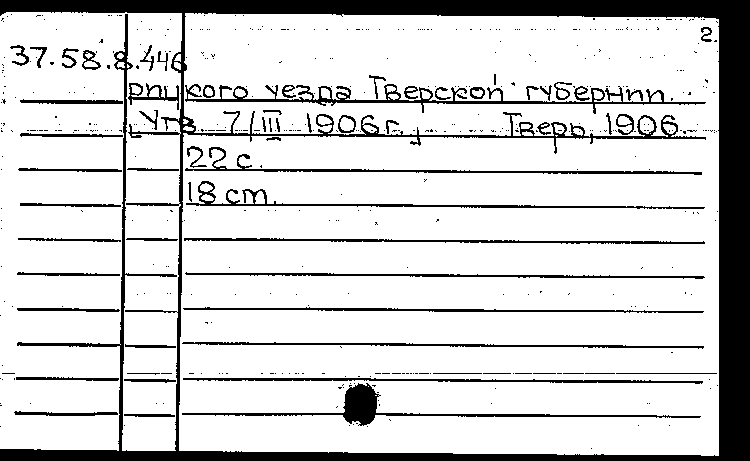 2.
37.58.8.446
рицкого уезда Тверской губернии.
[Утв. 7/III 1906г.] Тверь, 1906.
22 с.
18 cm.